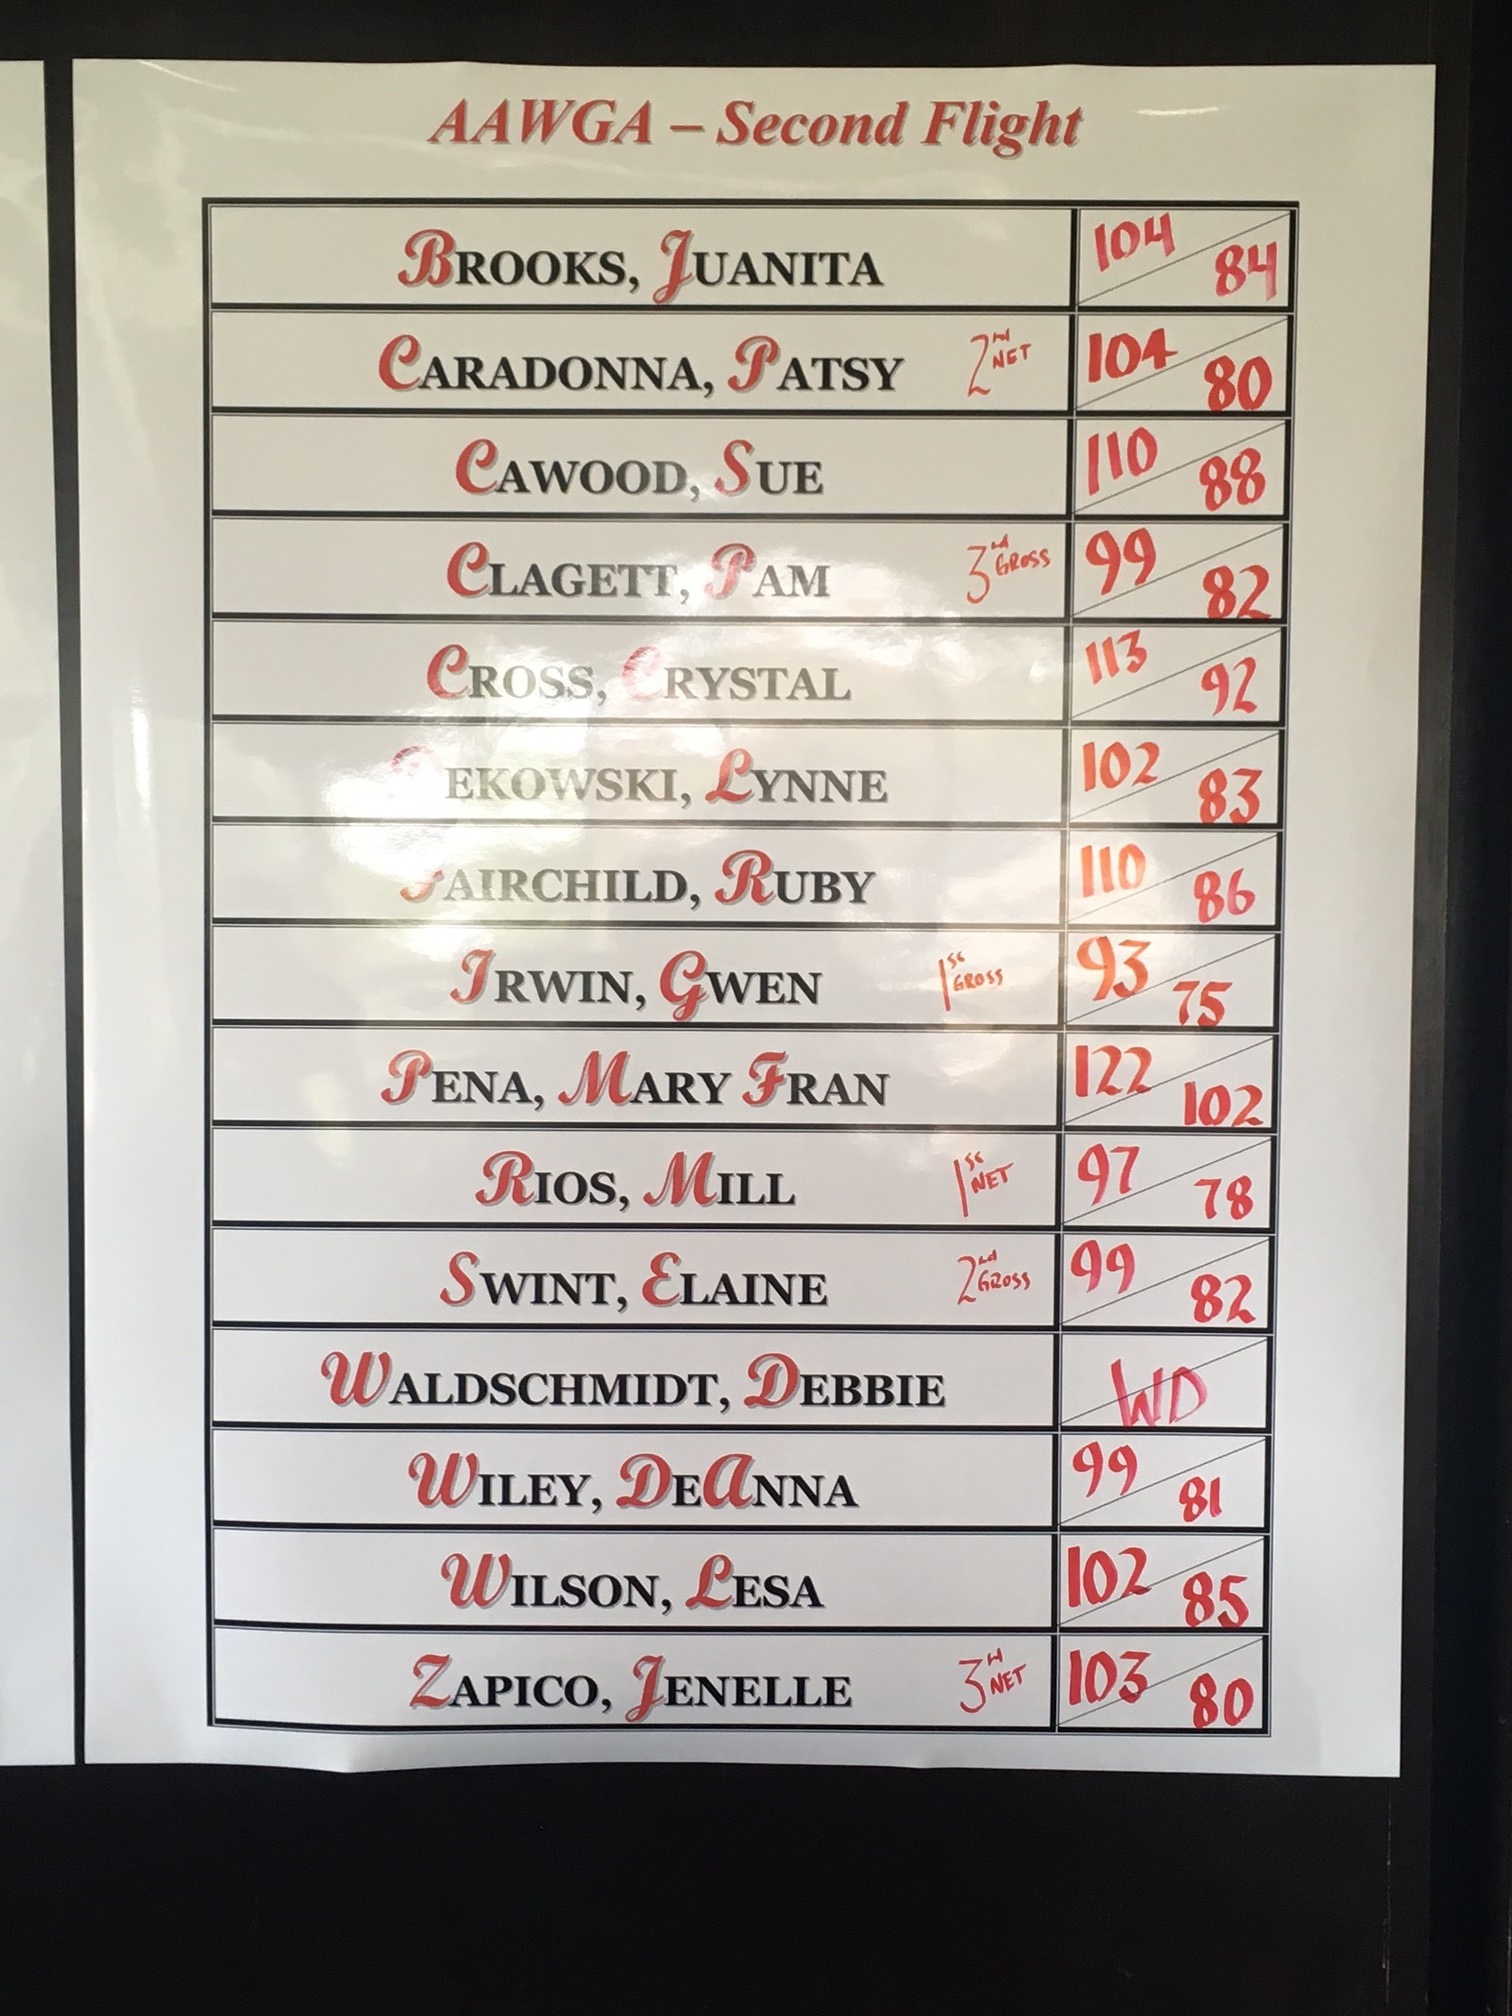 AAWGA – Second Flight
BROOKS, JUANITA 104 84
CARADONNA, PATSY 2nd NET 104 80
CAWOOD, SUE 110 88
CLAGETT, PAM 3rd GROSS 99 82
CROSS, CRYSTAL 113 92
LYNNE 102 83
FAIRCHILD, RUBY 110 86
IRWIN, GWEN 1st GROSS 93 75
PENA, MARY FRAN 122 102
RIOS, MILL 1st NET 97 78
SWINT, ELAINE 2nd GROSS 99 82
WALDSCHMIDT, DEBBIE WD
WILEY, DEANNA 99 81
WILSON, LESA 102 85
ZAPICO, JENELLE 3rd NET 103 80